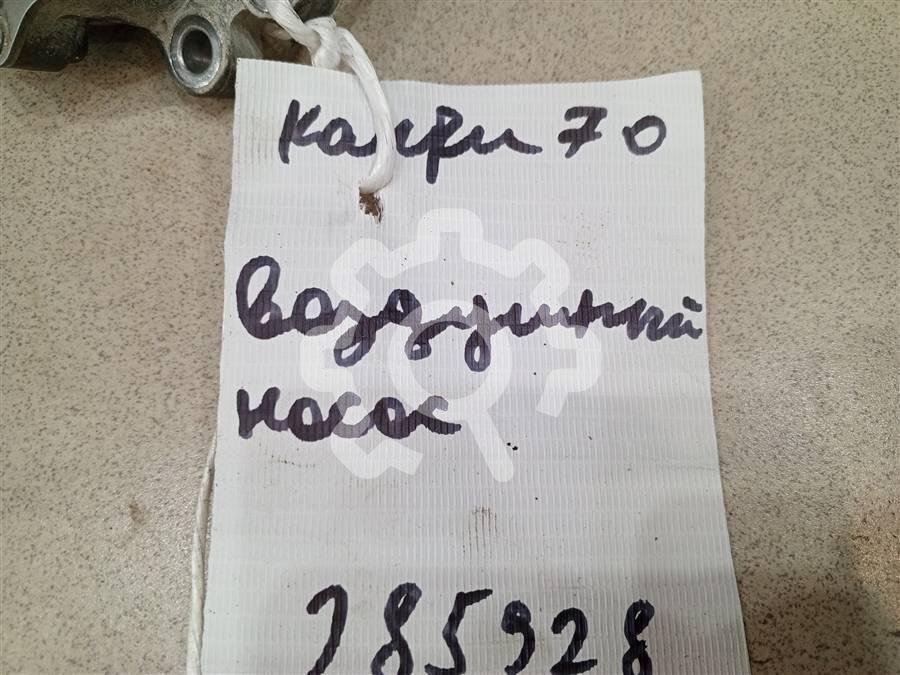 Камри 70
Воздушный
насос
285928